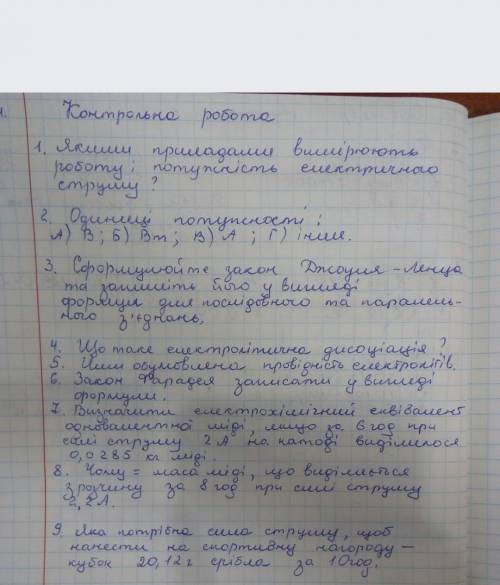 Контрольна робота
1. Якими приладами вимірюють
роботу і потужність електричного
струму?
2. Одиниці потужності:
А) В; Б) Вт; В) А; Г) інше.
3. Сформулюйте закон Джоуля-Ленца
та запишіть його у вигляді
формули для послідовного та паралель-
ного з'єднань.
4. Що таке електролітична дисоціація?
5. Чим обумовлена провідність електролітів.
6. Закон Фарадея записати у вигляді
формули.
7. Визначити електрохімічний еквівалент
одновалентної міді, якщо за 6 год при
силі струму 2А на катоді виділилося
0,0285 кг міді.
8. Чому = маса міді, що виділяється
з розчину за 8 год при силі струму
2,2А.
9. Яка потрібна сила струму, щоб
нанести на спортивну нагороду -
кубок 20,12 г срібла за 10 год.